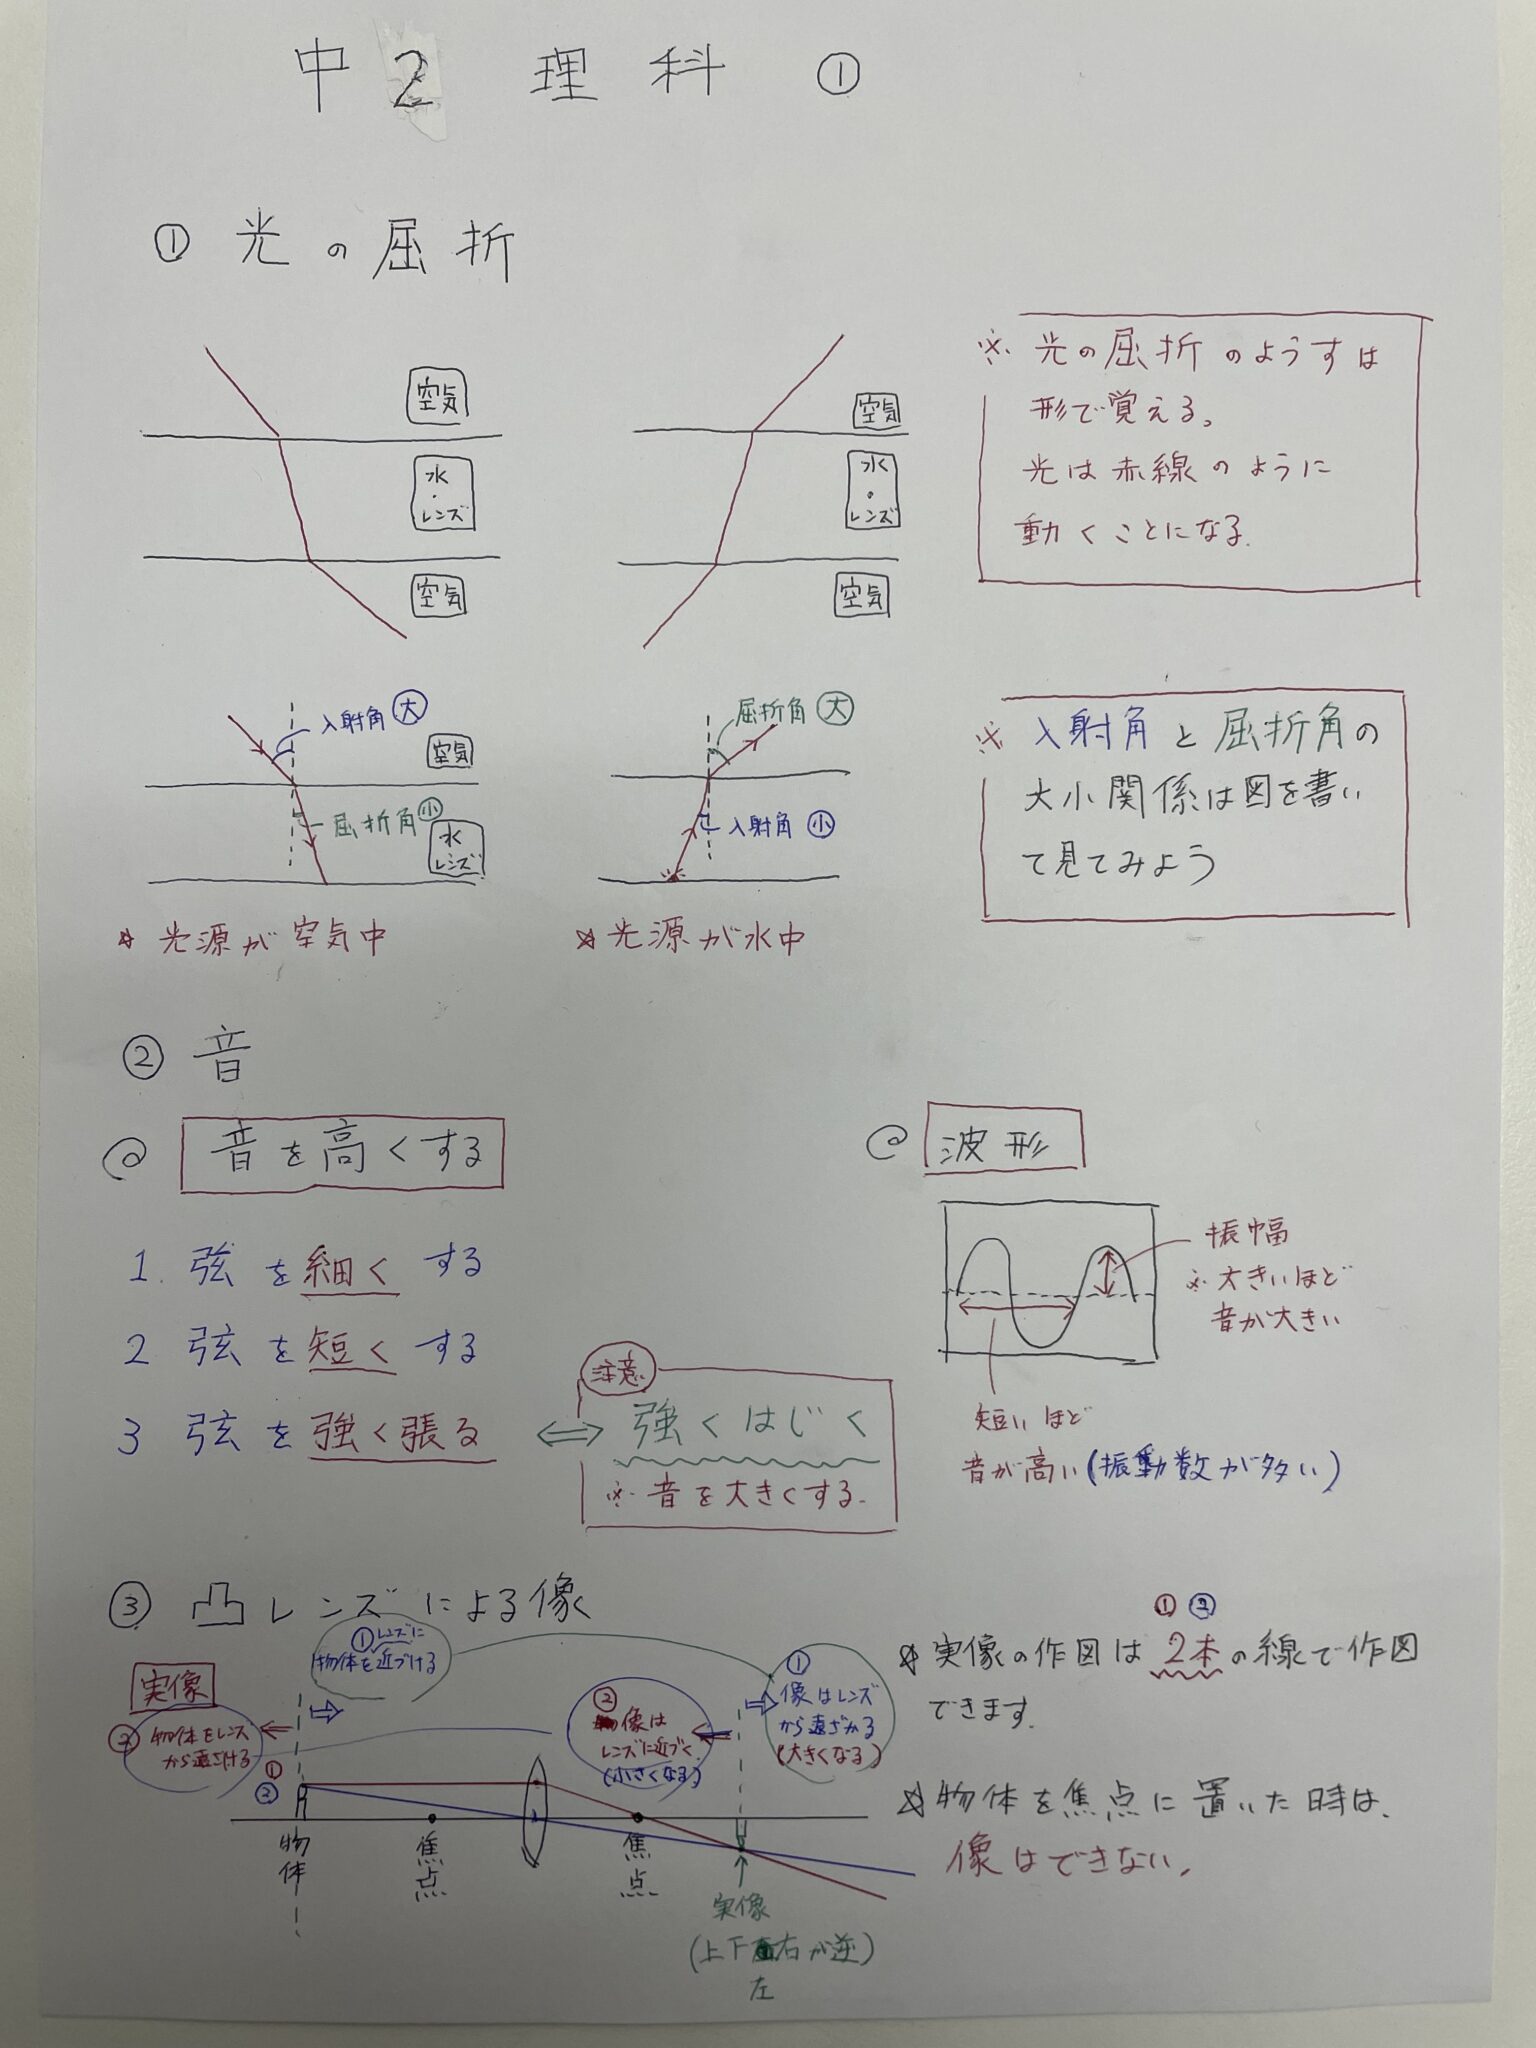 中2 理科 ①
① 光の屈折
空気
水・レンズ
空気
空気
水・レンズ
空気
※ 光の屈折のようすは
形で覚える。
光は赤線のように
動くことになる.
入射角 大
空気
屈折角 小
水
レンズ
☆ 光源が空気中
屈折角 大
入射角 小
☆ 光源が水中
※ 入射角と屈折角の
大小関係は図を書い
て見てみよう
② 音
@ 音を高くする
1. 弦を細くする
2 弦を短くする
3 弦を強く張る ⇔ 強くはじく
注意
※ 音を大きくする.
@ 波形
振幅
※ 大きいほど
音が大きい
短いほど
音が高い(振動数が多い)
③ 凸レンズによる像
実像
① レンズに
物体を近づける
② 物体をレンズ
から遠ざける
②
像は
レンズに近づく
(小さくなる)
①
像はレンズ
から遠ざかる
(大きくなる)
①
②
物体
焦点
焦点
実像
(上下 右が逆)
左
① ②
☆ 実像の作図は2本の線で作図
できます.
☆ 物体を焦点に置いた時は、
像はできない.